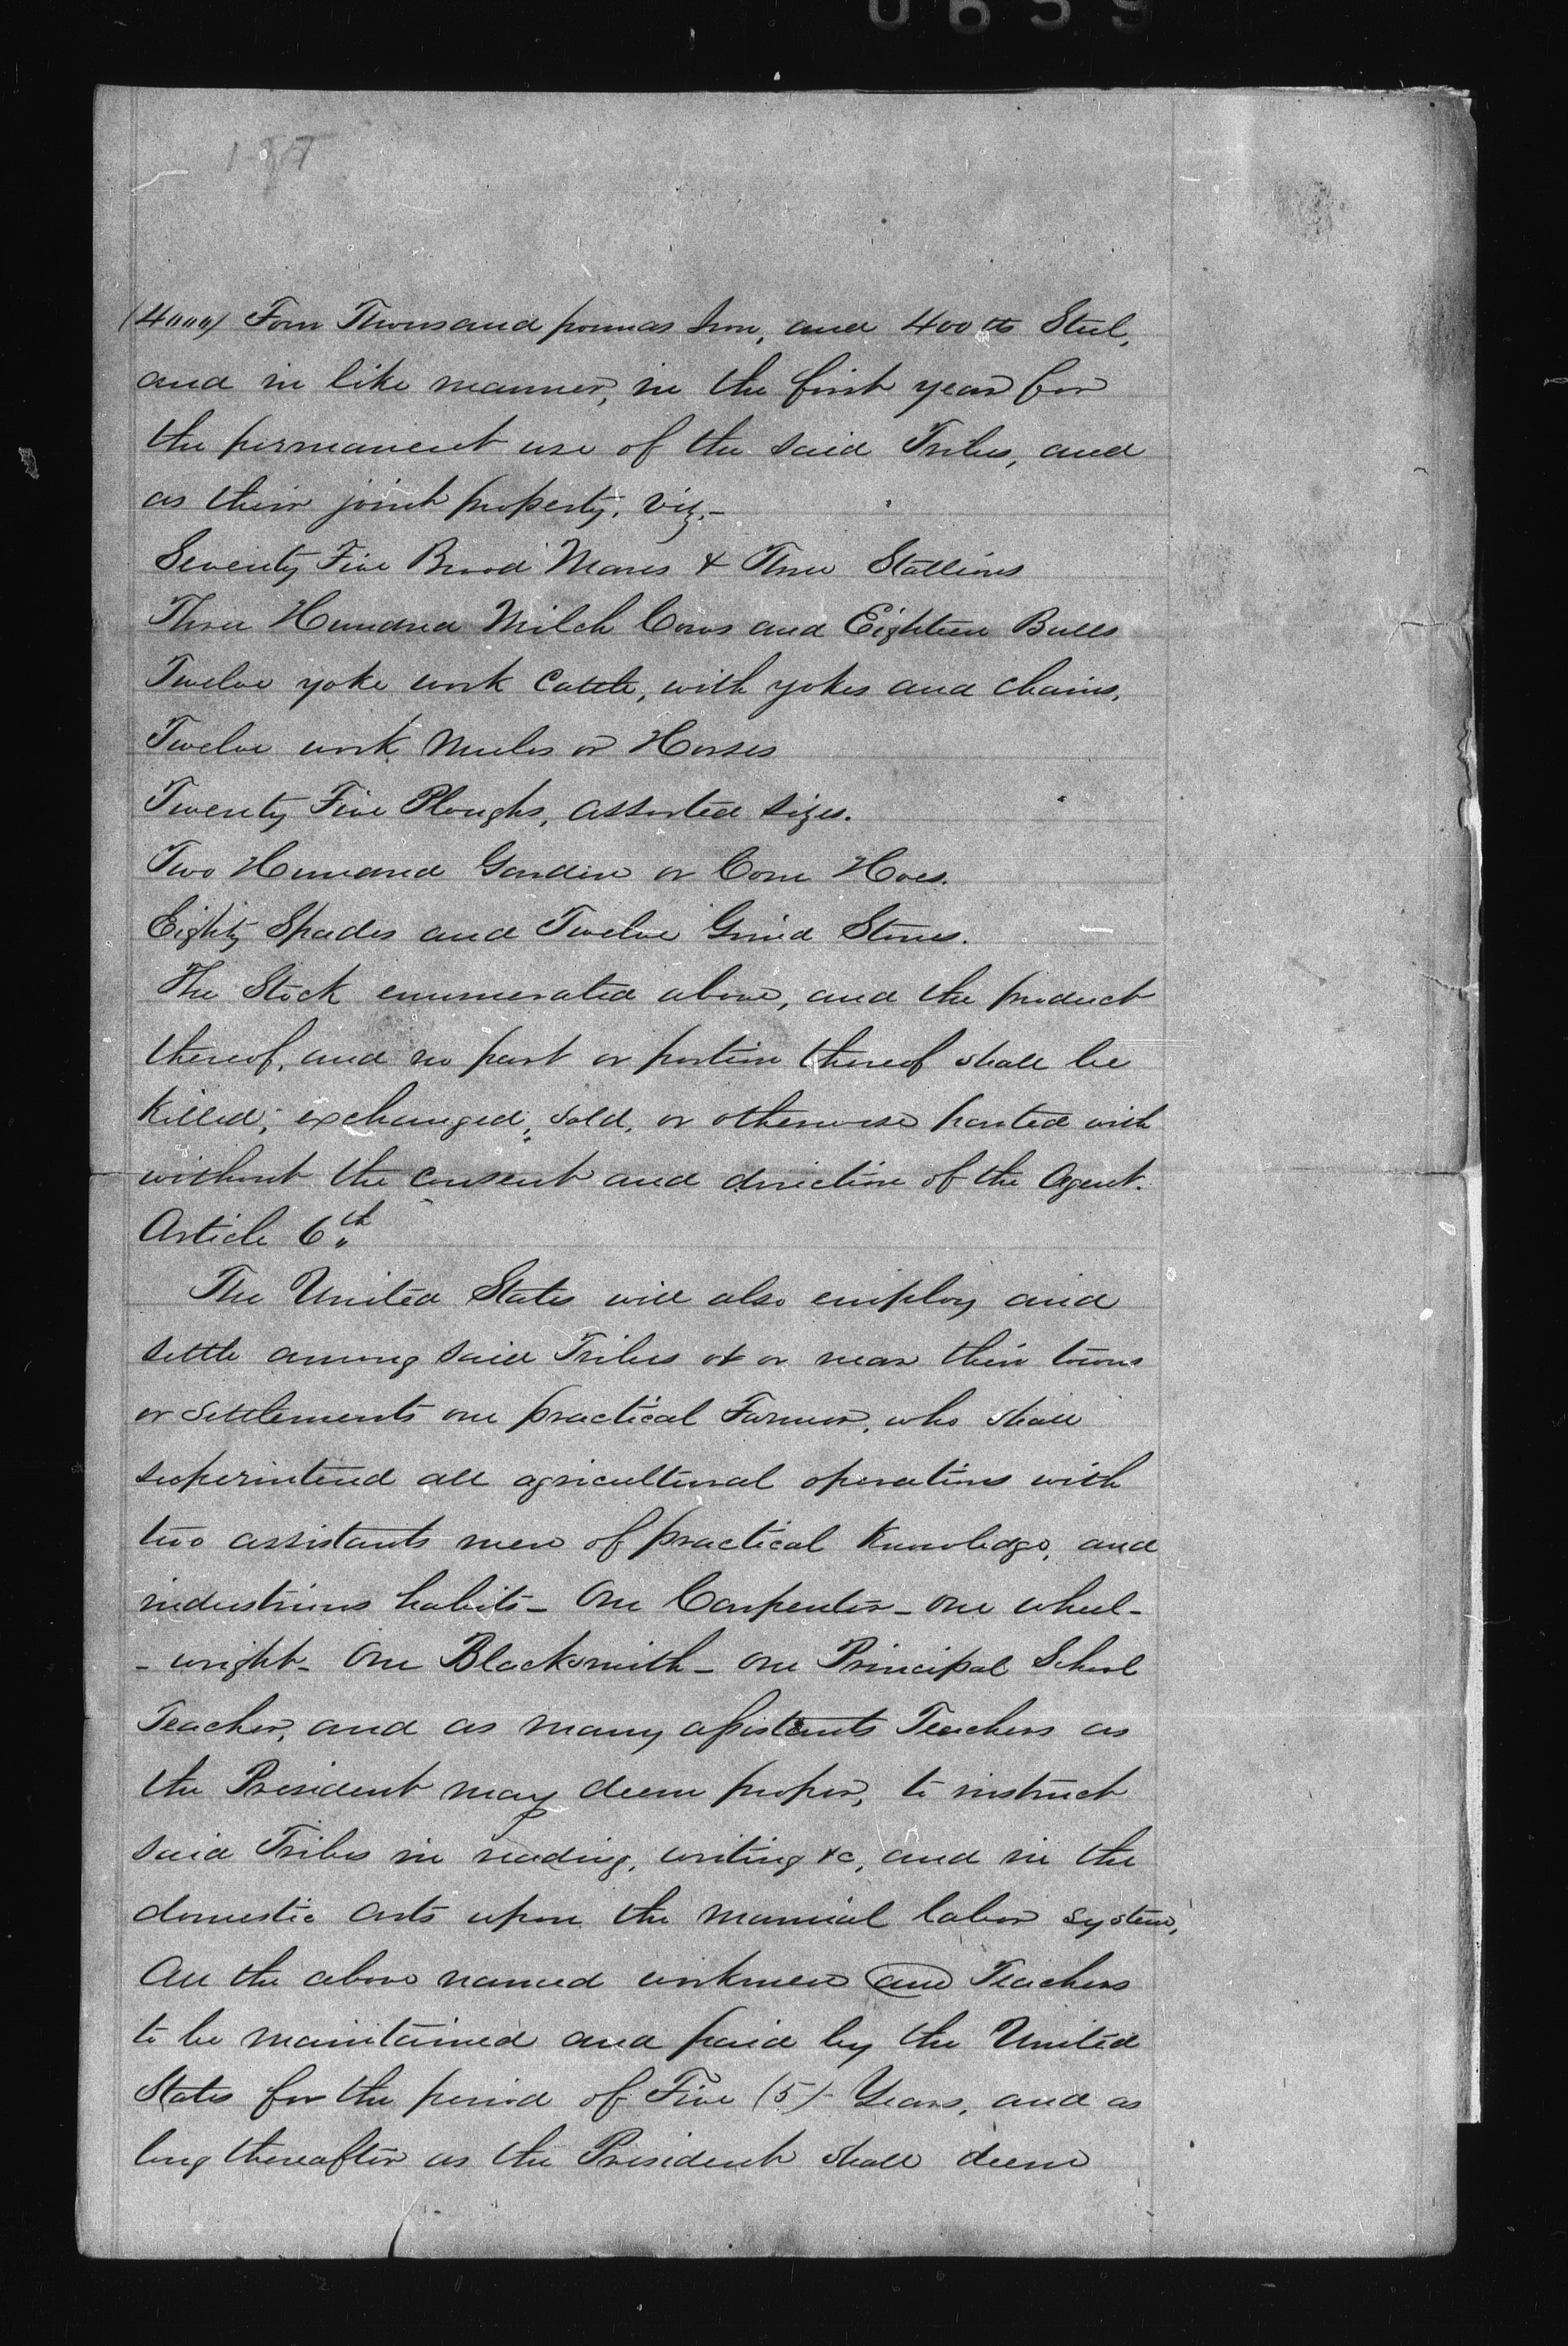 (4000) Four Thousand pounds Iron, and 400 lbs Steel,
and in like manner, in the first year for
the permanent use of the said Tribes, and
as their joint property, viz,-
Seventy Five Brood Mares & Three Stallions
Three Hundred Milch Cows and Eighteen Bulls
Twelve yoke work Cattle, with yokes and chains,
Twelve work Mules or Horses
Twenty Five Ploughs, assorted sizes.
Two Hundred Garden or Corn Hoes.
Eighty Spades and Twelve Grind Stones.
The Stock enumerated above, and the product
thereof, and no part or portion thereof shall be
killed, exchanged, sold, or otherwise parted with
without the consent and direction of the Agent.
Article 6th
The United States will also employ and
settle among said Tribes at or near their towns
or settlements one practical Farmer, who shall
superintend all agricultural operations with
two assistants men of practical Knowledge, and
industrious habits - One Carpenter - One wheel-
- wright - One Blacksmith - One Principal School
Teacher, and as many assistants Teachers as
the President may deem proper, to instruct
said Tribes in reading, writing &c, and in the
domestic arts upon the manual labor system,
All the above named workmen and Teachers
to be maintained and paid by the United
States for the period of Five (5) Years, and as
long thereafter as the President shall deem